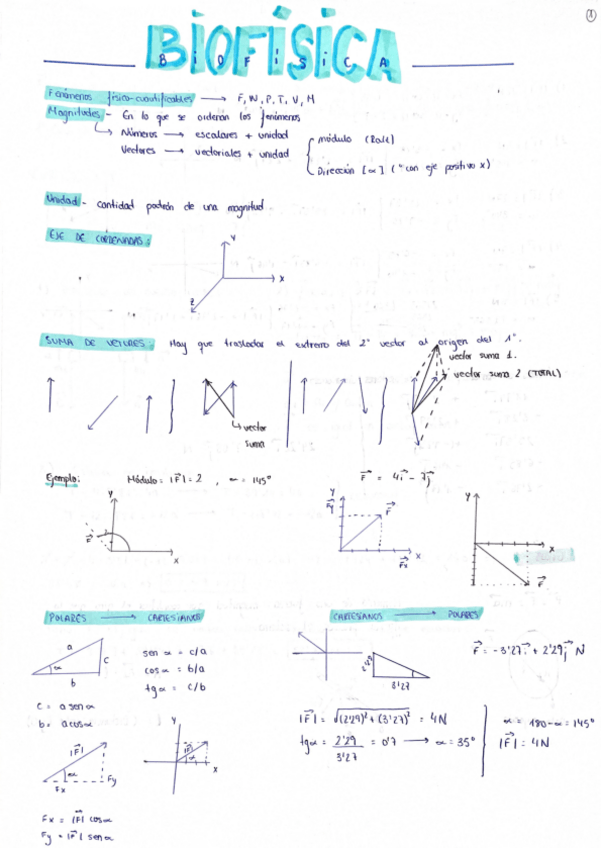 1
BIOFÍSICA
BIOFISICA
Fenómenos físico-cuantificables → F, W, P, T, V, M
Magnitudes - En lo que se ordenan los fenómenos
↳ Números → escalares + unidad
Vectores → vectoriales + unidad
módulo (Real)
Dirección [α] (" con eje positivo x)
Unidad - cantidad padrón de una magnitud
EJE DE COORDENADAS:
Y
X
Z
SUMA DE VECTORES. Hay que trasladar el extremo del 2º vector al origen del 1º.
vector suma 1.
vector suma 2 (TOTAL)
↳ vector
suma
Ejemplo: Módulo: |F⃗| = 2 , α = 145°
F⃗ = 4i⃗ - 7j⃗
y
F⃗
x
y
F⃗y
F⃗
F⃗x
x
y
x
F⃗
POLARES → CARTESIANOS
CARTESIANOS → POLARES
a
c
α
b
sen α = c/a
cos α = b/a
tg α = c/b
c = a sen α
b = a cos α
2'29
3'27
F⃗ = -3'27i⃗ + 2'29j⃗ N
|F⃗| = √(2'29)² + (3'27)² = 4N
tg α = 2'29/3'27 = 0'7 → α = 35°
α = 180 - α = 145°
|F⃗| = 4N
|F⃗|
α
Fx
Fy
Y
|F⃗|
α
X
Fx = |F⃗| cos α
Fy = |F⃗| sen α